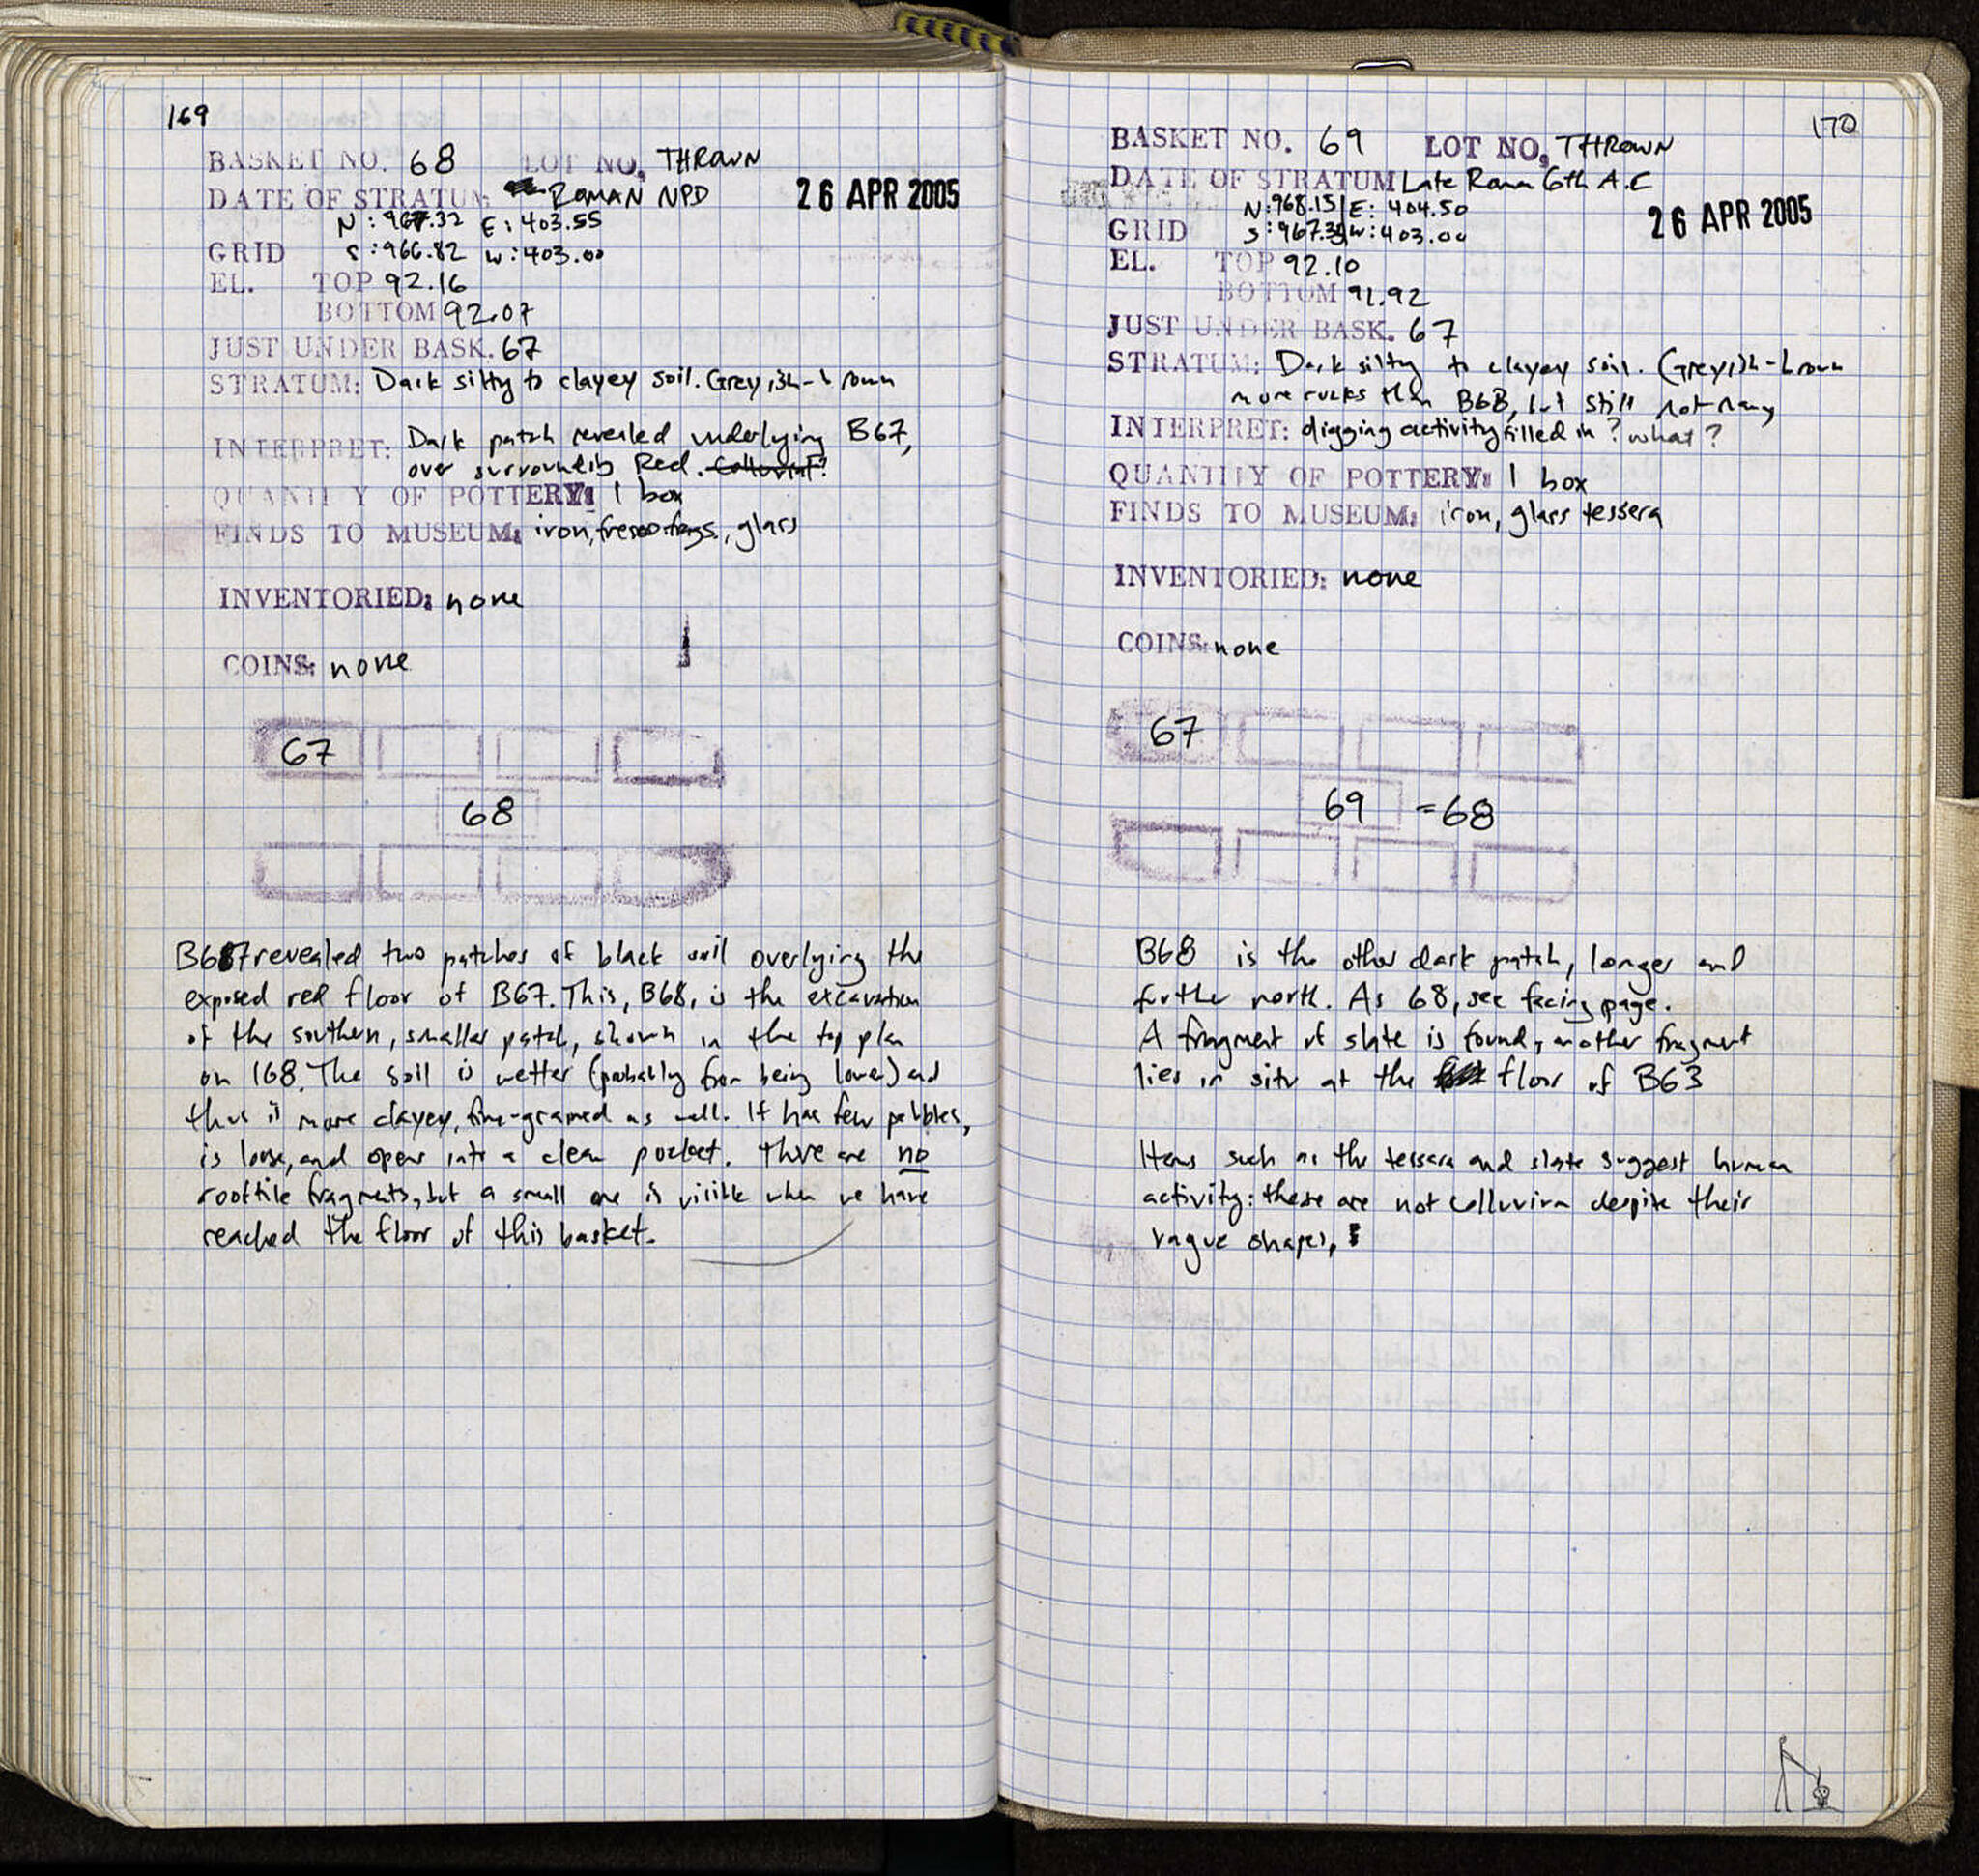 169
BASKET NO. 68 LOT NO. THROWN
DATE OF STRATUM: ROMAN NPD 26 APR 2005
N: 967.32 E: 403.55
GRID S: 966.82 W: 403.00
EL. TOP 92.16
BOTTOM 92.07
JUST UNDER BASK. 67
STRATUM: Dark silty to clayey soil. Greyish-brown
INTERPRET: Dark patch revealed underlying B67,
over surrounding Red.
QUANTITY OF POTTERY: 1 box
FINDS TO MUSEUM: iron, fresco frags., glass
INVENTORIED: none
COINS: none
67
68
B67 revealed two patches of black soil overlying the
exposed red floor of B67. This, B68, is the excavation
of the southern, smaller patch, shown in the top plan
on 168. The soil is wetter (probably from being lower) and
thus is more clayey, fine-grained as well. It has few pebbles,
is loose, and opens into a clean pocket. There are no
rooftile fragments, but a small one is visible when we have
reached the floor of this basket.
170
BASKET NO. 69 LOT NO. THROWN
DATE OF STRATUM Late Roman 6th A.C
N: 968.15 E: 404.50 26 APR 2005
GRID S: 967.39 W: 403.00
EL. TOP 92.10
BOTTOM 91.92
JUST UNDER BASK. 67
STRATUM: Dark silty to clayey soil. Greyish-brown
more rocks than B68, but still not many
INTERPRET: digging activity filled in? what?
QUANTITY OF POTTERY: 1 box
FINDS TO MUSEUM: iron, glass tessera
INVENTORIED: none
COINS: none
67
69 =68
B68 is the other dark patch, longer and
further north. As 68, see facing page.
A fragment of slate is found, another fragment
lies in situ at the floor of B63
Items such as the tessera and slate suggest human
activity: these are not colluvium despite their
vague shapes,